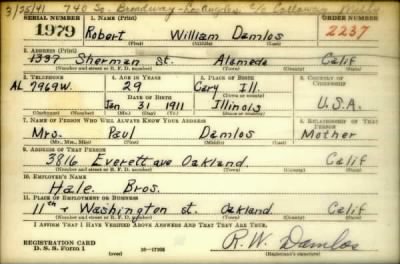 3/25/41 740 So. Broadway - Los Angeles c/o Callaway Mills
SERIAL NUMBER 1. NAME (Print) ORDER NUMBER
1979 Robert William Damlos 2237
(First) (Middle) (Last)
2. ADDRESS (Print)
1337 Sherman St. Alameda Calif
(Number and street or R. F. D. number) (Town) (County) (State)
3. TELEPHONE 4. AGE IN YEARS 5. PLACE OF BIRTH 6. COUNTRY OF CITIZENSHIP
AL 7969W. 29 Cary Ill.
DATE OF BIRTH (Town or county)
Jan 31 1911 Illinois U.S.A.
(Exchange) (Number) (Mo.) (Day) (Yr.) (State or country)
7. NAME OF PERSON WHO WILL ALWAYS KNOW YOUR ADDRESS 8. RELATIONSHIP OF THAT PERSON
Mrs. Paul Damlos Mother
(Mr., Mrs., Miss) (First) (Middle) (Last)
9. ADDRESS OF THAT PERSON
3816 Everett ave Oakland. Calif
(Number and street or R. F. D. number) (Town) (County) (State)
10. EMPLOYER'S NAME
Hale Bros.
11. PLACE OF EMPLOYMENT OR BUSINESS
11th & Washington st. Oakland. Calif
(Number and street or R. F. D. number) (Town) (County) (State)
I AFFIRM THAT I HAVE VERIFIED ABOVE ANSWERS AND THAT THEY ARE TRUE.
REGISTRATION CARD
D. S. S. Form 1 (over) R. W. Damlos
(Registrant's signature)